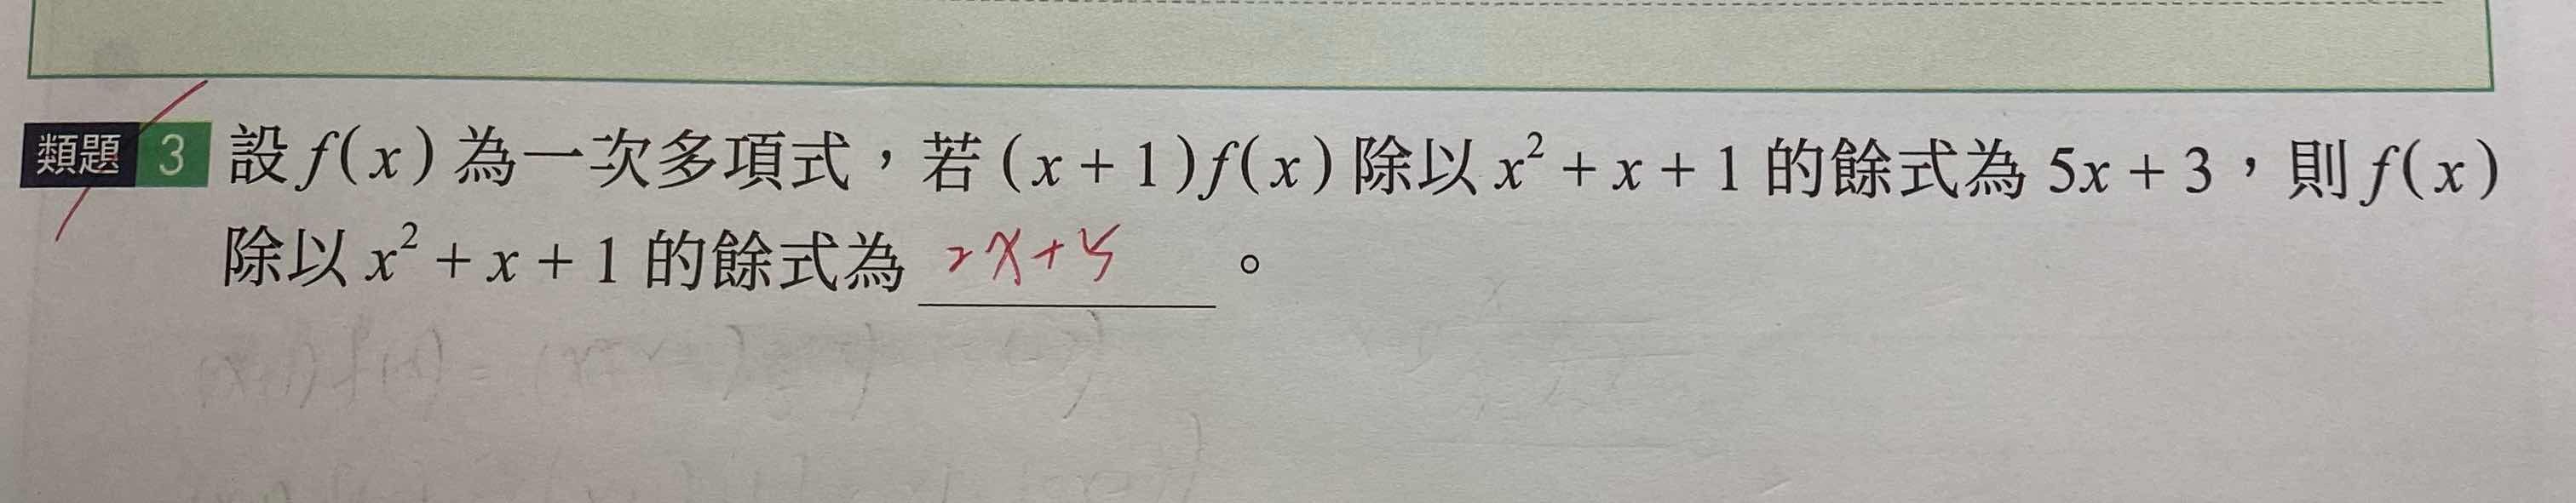 類題 3 設f(x)為一次多項式，若(x+1)f(x)除以x²+x+1的餘式為5x+3，則f(x)
除以x²+x+1的餘式為 2x+5 。